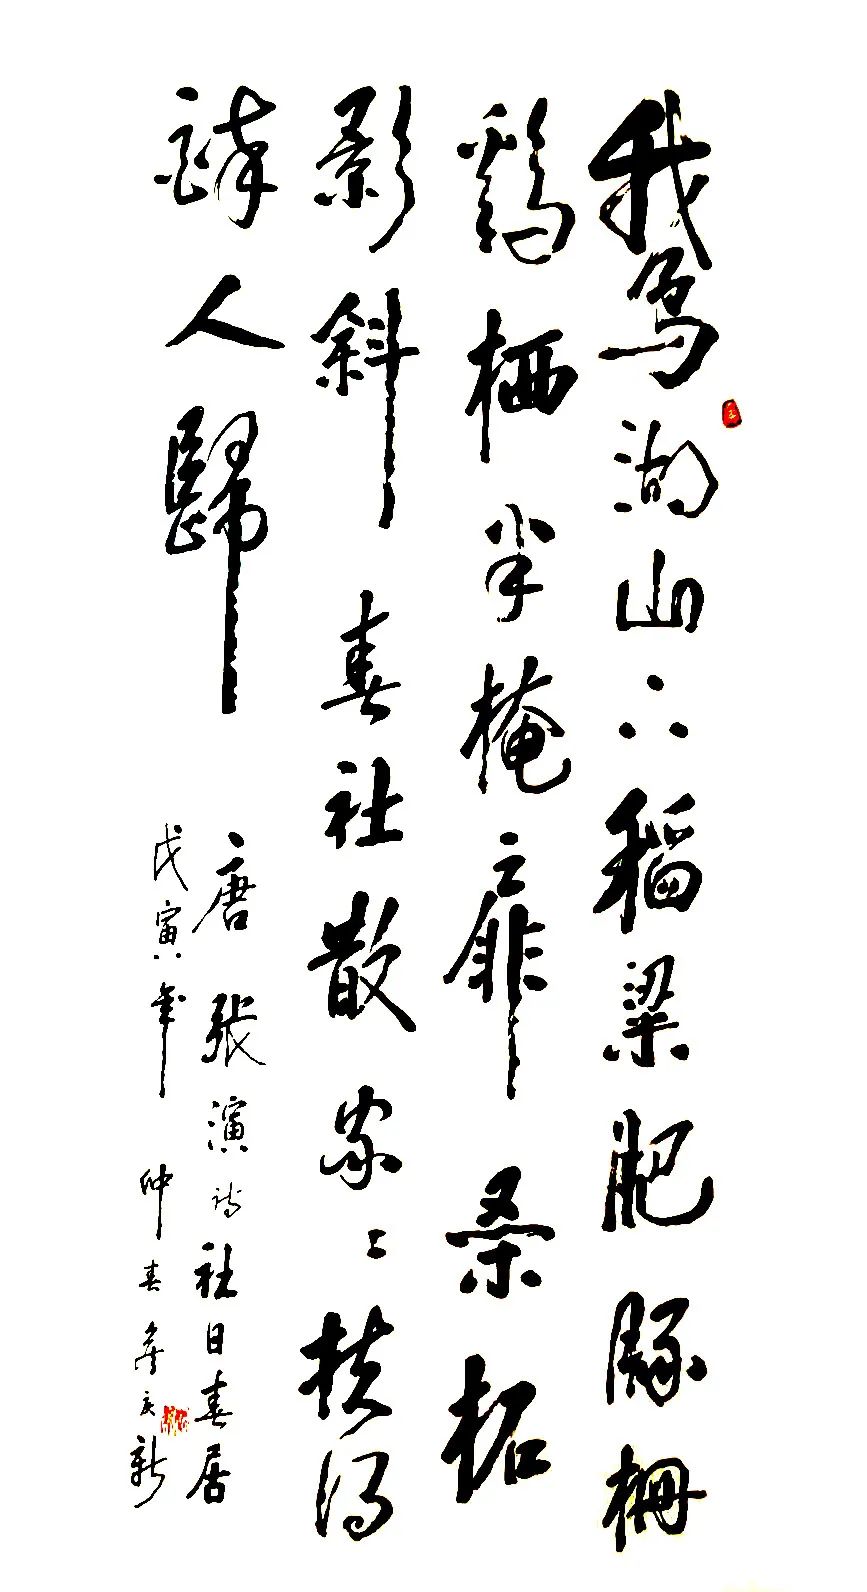 鵝湖山下稻粱肥豚柵
鷄栖半掩扉桑柘
影斜春社散家々扶得
醉人歸
唐張演詩社日春居
戊寅年仲春新